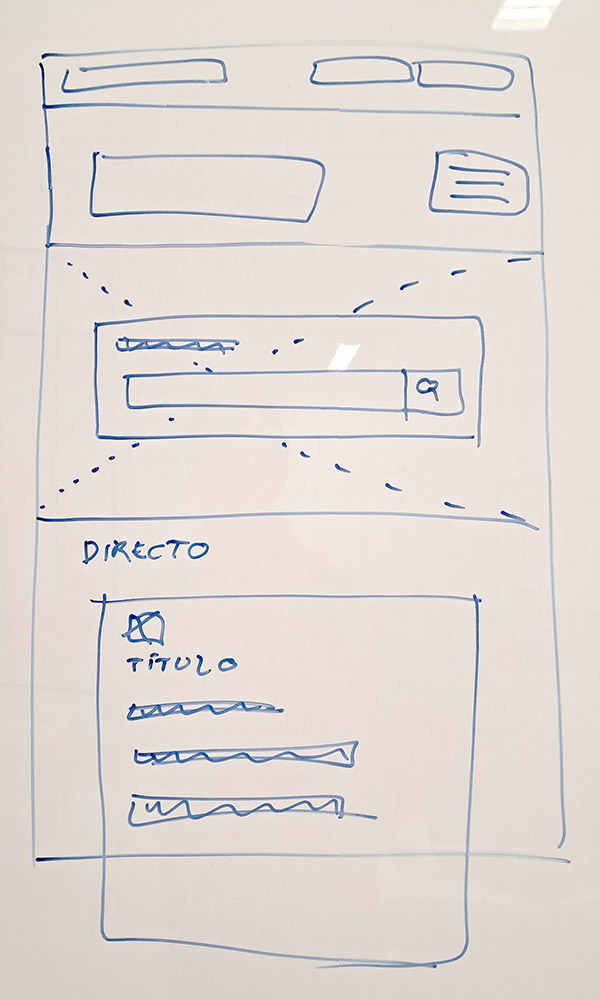 DIRECTO
TÍTULO